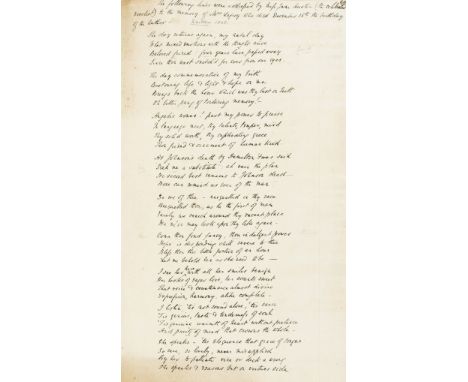 The following lines were composed by Miss Jane Austen (the celebrated
novelist) to the memory of Mrs Lefroy who died December 16th the birthday
of the author – Written 1808.
The day returns again, my natal day
What mixed emotions with the thought arise
Beloved friend four years have passed away
Since thou wert snatch'd for ever from our eyes
The day commemorative of my birth
Bestowing life & light & hope on me
Brings back the hour which was thy last on Earth
Oh bitter pang of torturing memory!
Angelic woman! past my power to praise
In language meet, thy talents, temper, mind
Thy solid worth, thy captivating grace
Thou friend & ornament of human kind
At Johnson's death by Hamilton t'was said
Seek we a substitute – ah vain the plan
No second best remains to Johnson dead –
None can remind us even of the man
So we of thee – unequalled in thy race
Unequalled thou, as he the first of men
Vainly we search around thy vacant place
We ne'er may look upon thy like again –
Come then fond fancy, thou indulgent power
Hope is desponding chill severe to thee
Bless thou this little portion of an hour
Let me behold her as she used to be –
I see her here with all her smiles benign
Her looks of eager love, her accents sweet
That voice & countenance almost divine
Expression, harmony, alike complete –
I listen 'tis not sound alone, 'tis sense
'Tis genius, taste & tenderness of soul
'Tis genuine warmth of heart without pretence
And purity of mind that crowns the whole –
She speaks – 'tis eloquence that grace of tongue
So rare, so lovely, never misapplied
By her to palliate vice or deck a wrong
She speaks & reasons but on virtues side